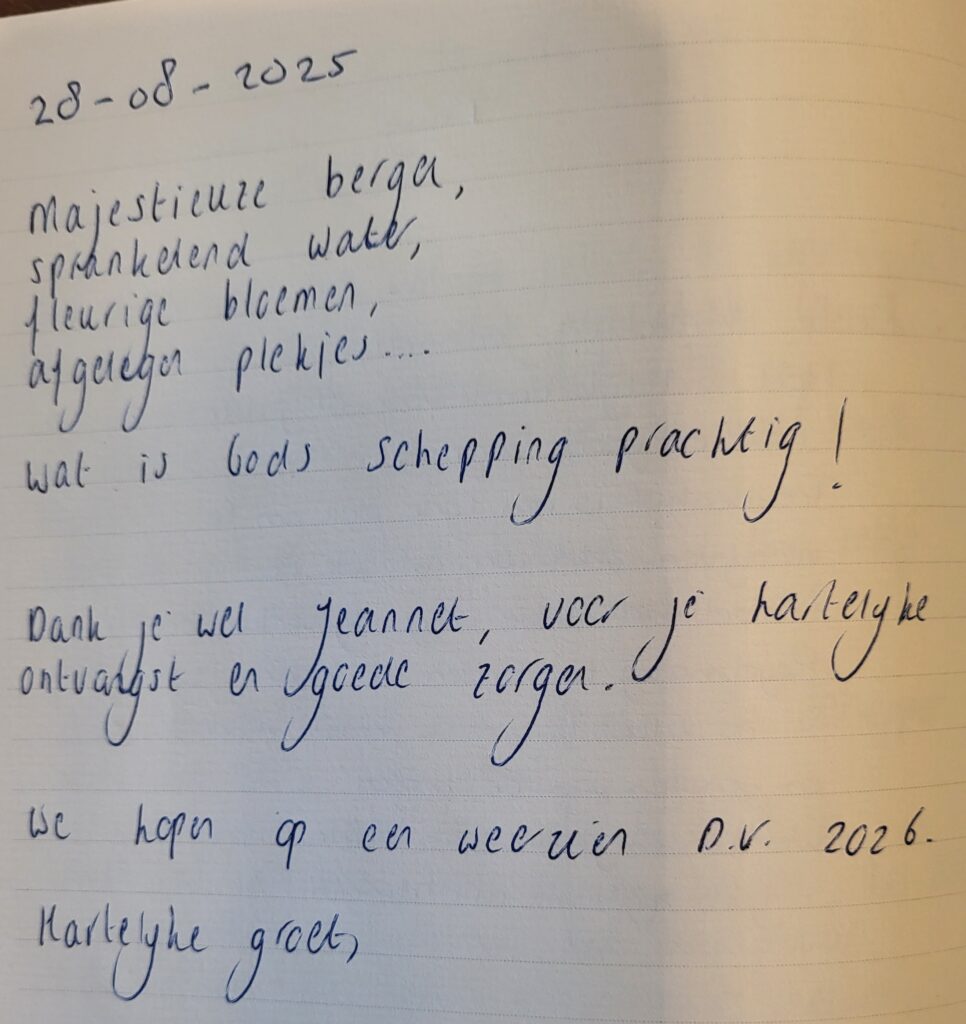 28-08-2025
Majestieuze bergen,
sprankelend water,
fleurige bloemen,
afgelegen plekjes....
wat is Gods schepping prachtig!
Dank je wel Jeannet, voor je hartelyke
ontvangst en goede zorgen.
We hopen op een weerzien D.V. 2026.
Hartelyke groet,